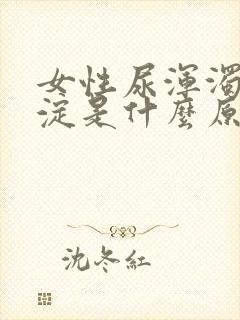 女性尿渾濁
淀是什麼原
沈冬紅